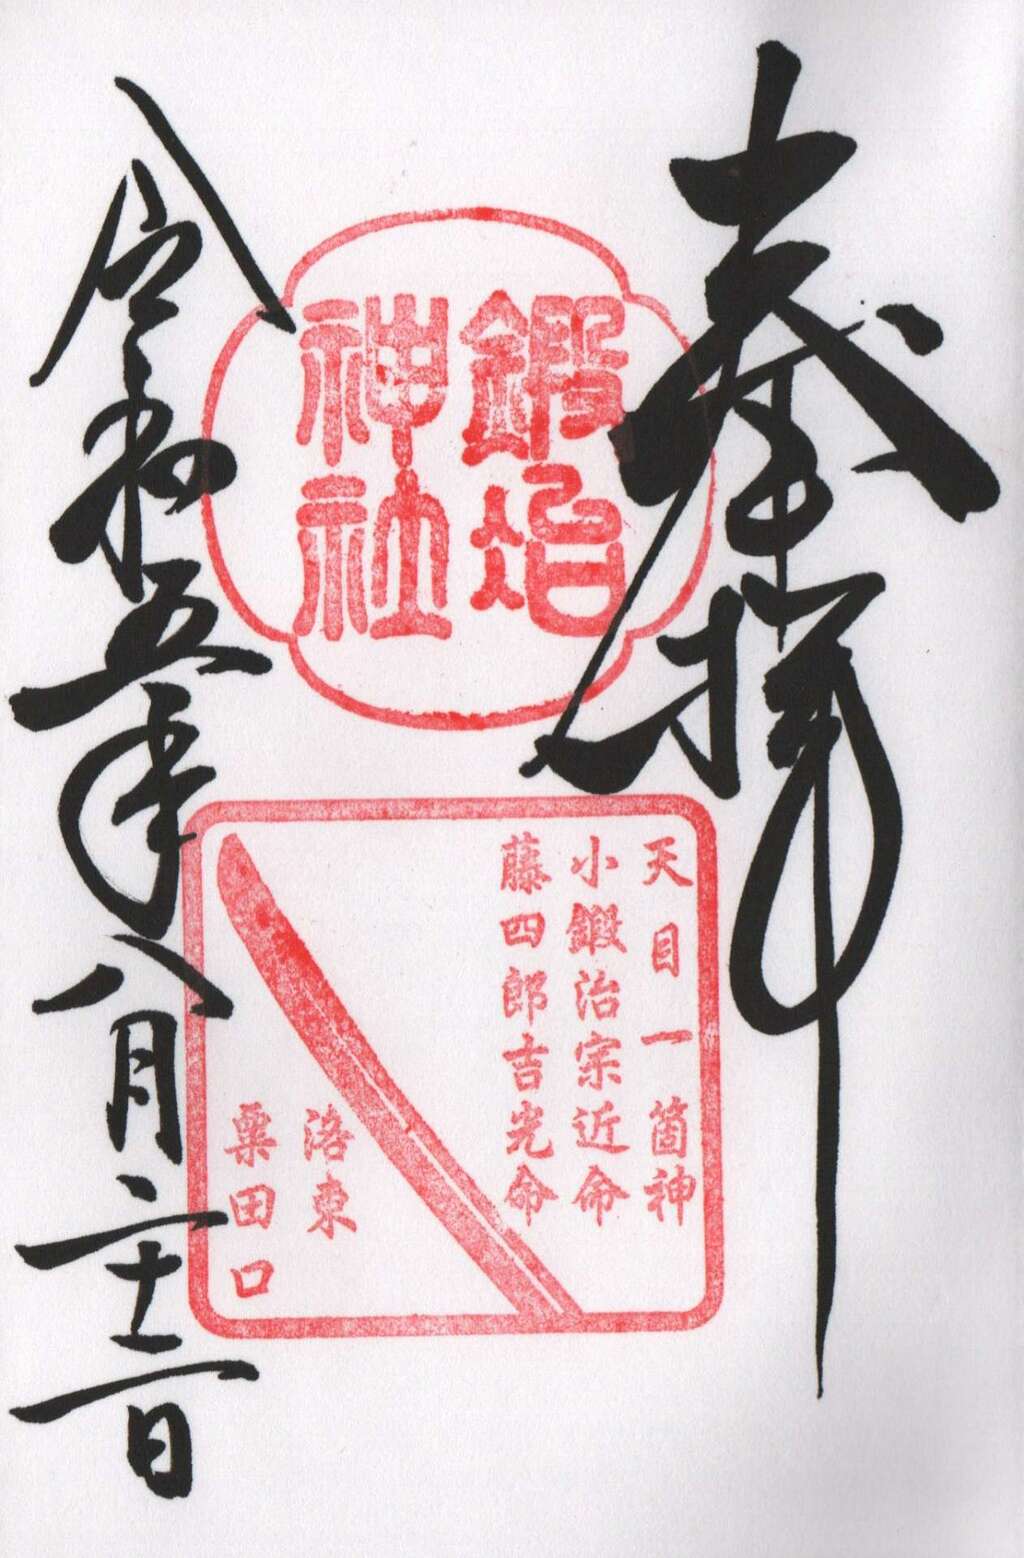 奉拝
鍛冶
神社
天目一箇神
小鍛治宗近命
藤四郎吉光命
洛東
粟田口
令和五年八月二十二日